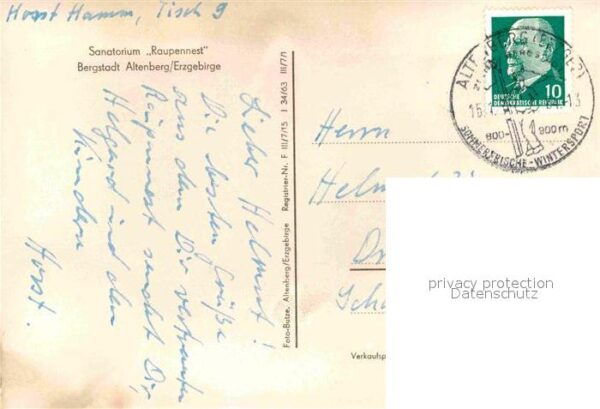 Horst Hamm, Tisch 9
Sanatorium „Raupennest"
Bergstadt Altenberg/Erzgebirge
Lieber Helmut!
Die besten Grüße
aus dem Dir vertrauten
Raupennest sendet Dir,
Helga und den
Kindern
Horst.
Foto-Butze, Altenberg/Erzgebirge Registrier-Nr. F III/7/15 I 34/63 III/7/1
Herrn
Verkaufsp
DEUTSCHE
DEMOKRATISCHE REPUBLIK
10
ALTENBERG (ERZGEB)
800- 900m
SOMMERFRISCHE-WINTERSPORT
privacy protection
Datenschutz